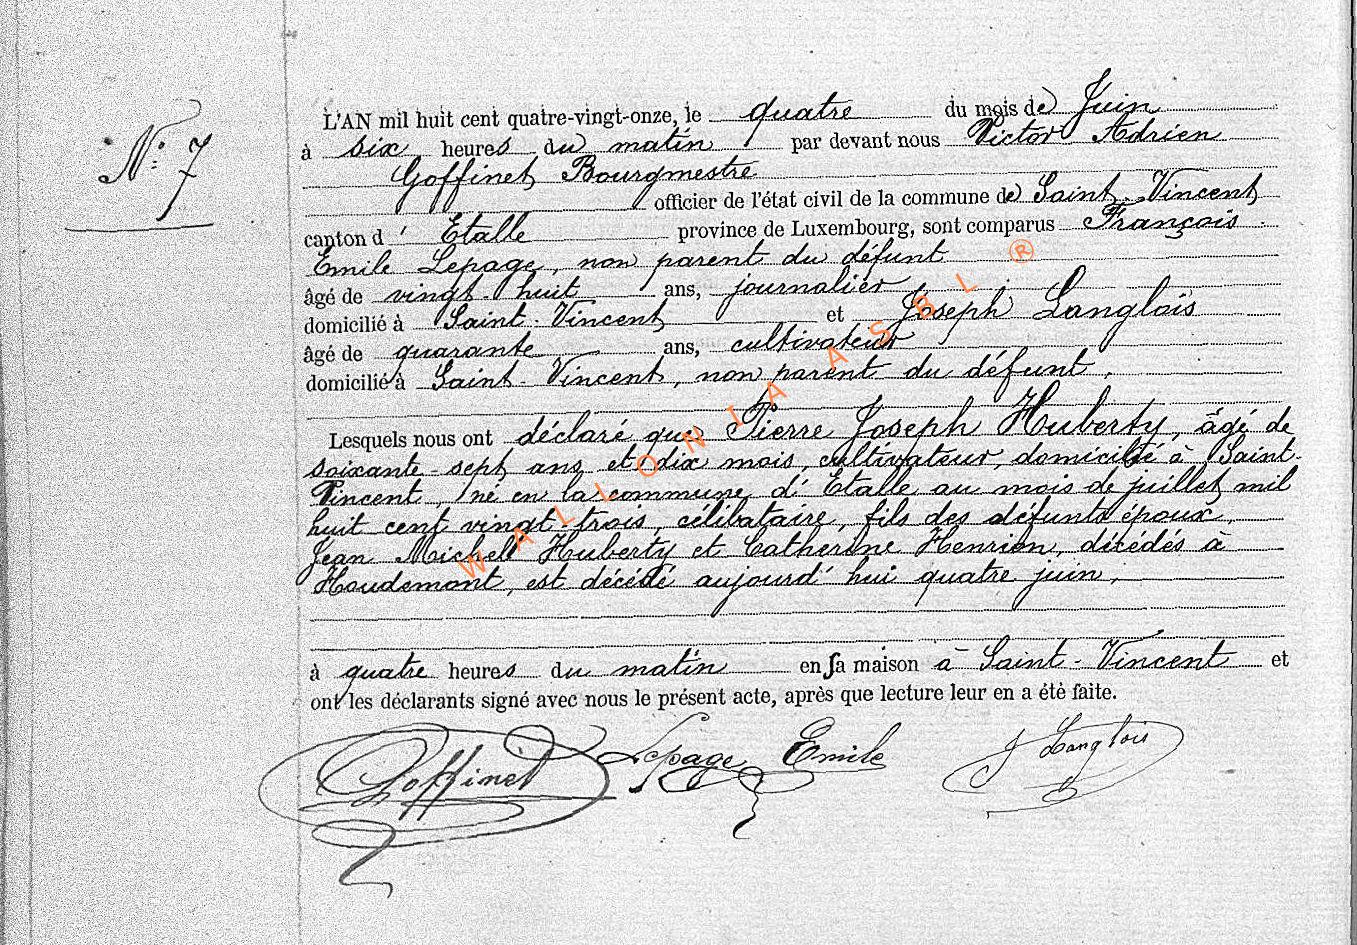 N° 7
L'AN mil huit cent quatre-vingt-onze, le quatre du mois de Juin
à six heures du matin par devant nous Victor Adrien
Goffinet Bourgmestre
officier de l'état civil de la commune de Saint-Vincent
canton d'Etalle province de Luxembourg, sont comparus François
Emile Lepage, non parent du défunt
âgé de vingt-huit ans, journalier
domicilié à Saint-Vincent et Joseph Langlois
âgé de quarante ans, cultivateur
domicilié à Saint-Vincent, non parent du défunt,
Lesquels nous ont déclaré que Pierre Joseph Huberty, âgé de
soixante-sept ans et dix mois, cultivateur, domicilié à Saint-
Vincent, né en la commune d'Etalle au mois de juillet mil
huit cent vingt-trois, célibataire, fils des défunts époux,
Jean Michel Huberty et Catherine Henrion, décédés à
Houdemont, est décédé aujourd'hui quatre juin,
à quatre heures du matin en sa maison à Saint-Vincent et
ont les déclarants signé avec nous le présent acte, après que lecture leur en a été faite.
Goffinet Lepage Emile J Langlois
WALLONIA ASBL ®